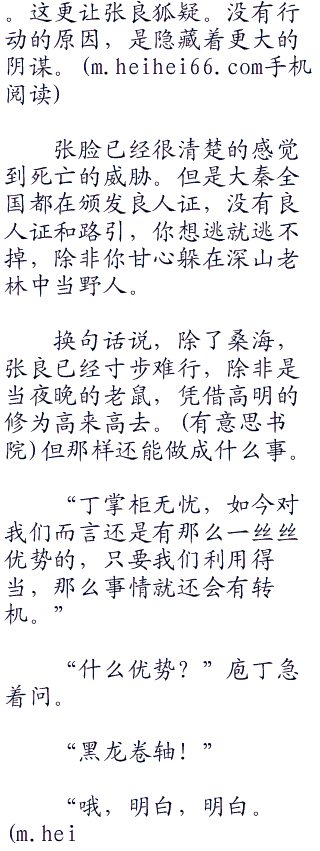 。这更让张良狐疑。没有行
动的原因，是隐藏着更大的
阴谋。(m.heihei66.com手机
阅读)
张脸已经很清楚的感觉
到死亡的威胁。但是大秦全
国都在颁发良人证，没有良
人证和路引，你想逃就逃不
掉，除非你甘心躲在深山老
林中当野人。
换句话说，除了桑海，
张良已经寸步难行，除非是
当夜晚的老鼠，凭借高明的
修为高来高去。(有意思书
院)但那样还能做成什么事。
“丁掌柜无忧，如今对
我们而言还是有那么一丝丝
优势的，只要我们利用得
当，那么事情就还会有转
机。”
“什么优势？”庖丁急
着问。
“黑龙卷轴！”
“哦，明白，明白。
(m.hei